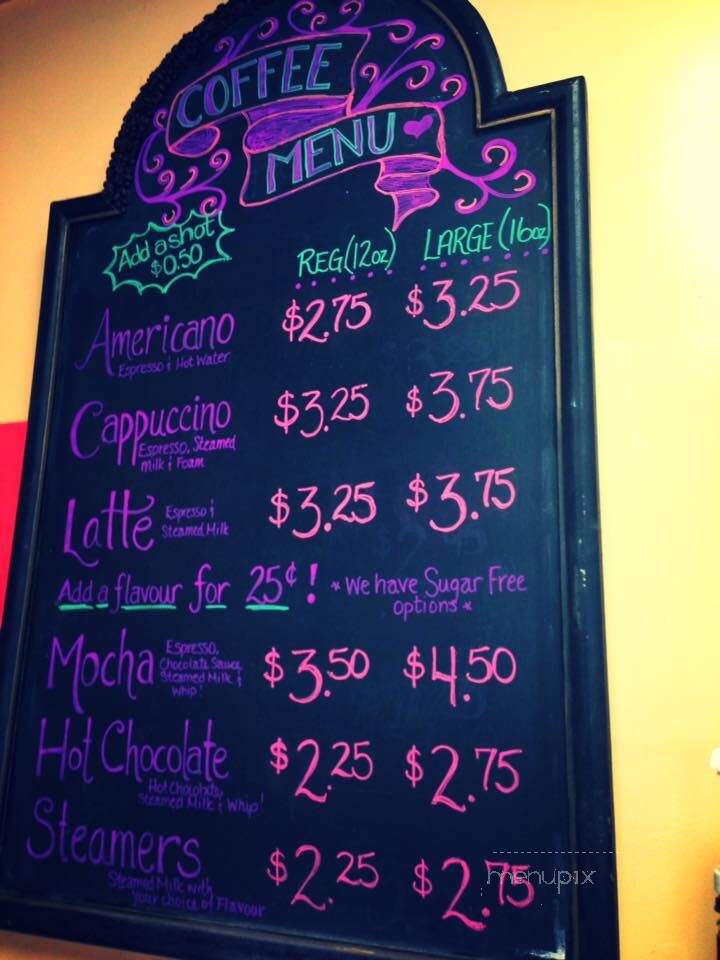 COFFEE
MENU
Add a shot
$0.50
REG(12oz) LARGE(16oz)
Americano $2.75 $3.25
Espresso & Hot Water
Cappuccino $3.25 $3.75
Espresso, Steamed
Milk & Foam
Latte Espresso & $3.25 $3.75
Steamed Milk
Add a flavour for 25¢! *We have Sugar Free
options*
Mocha Espresso, $3.50 $4.50
Chocolate Sauce
Steamed Milk &
Whip!
Hot Chocolate $2.25 $2.75
Hot Chocolate,
Steamed Milk & Whip!
Steamers $2.25 $2.75
Steamed Milk with
your choice of Flavour
menupix